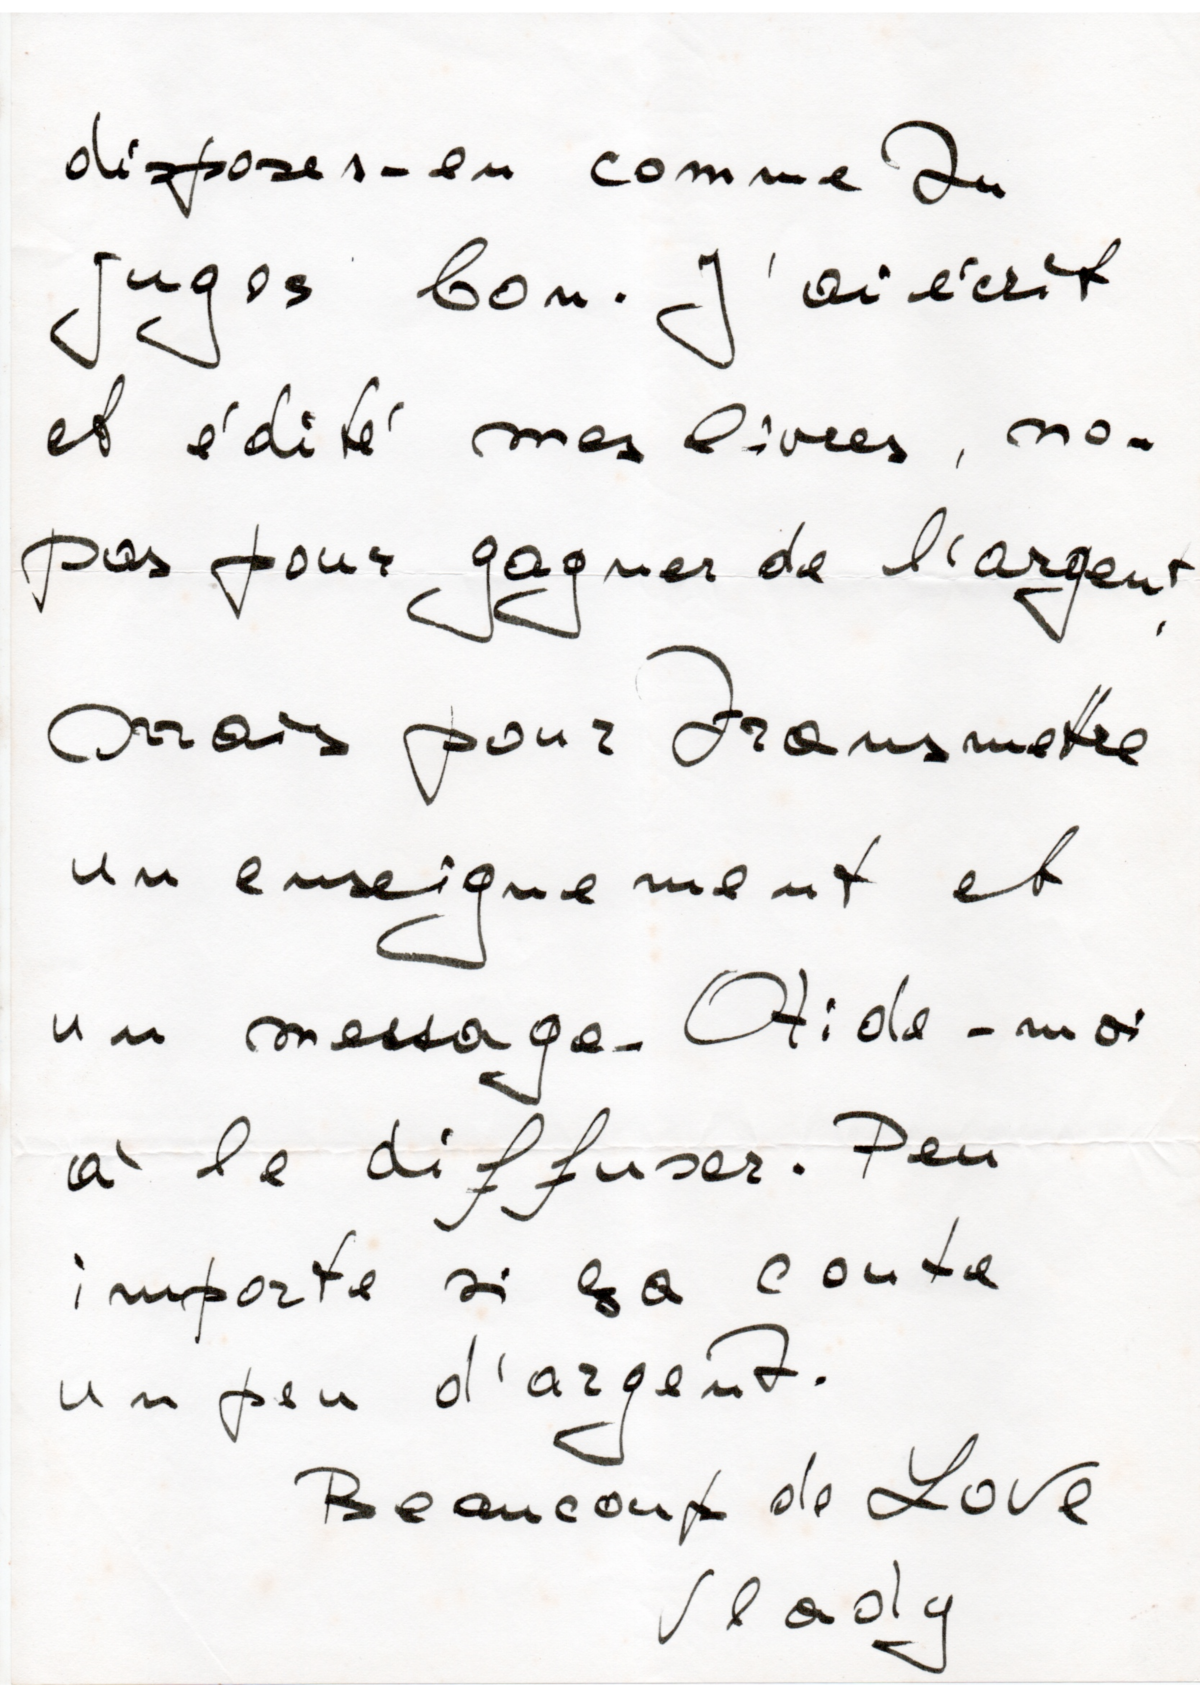 disposes-en comme Tu
juges bon. J'ai écrit
et édité mes livres, non
pas pour gagner de l'argent,
mais pour Transmettre
un enseignement et
un message. Aide-moi
à le diffuser. Peu
importe si ça coute
un peu d'argent.
Beaucoup de Love
Vlady